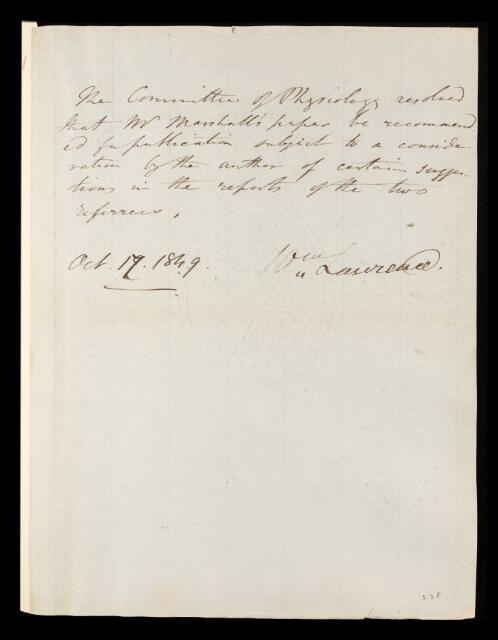 The Committee of Physiology resolved
that Mr Marshall's paper be recommend
ed for publication subject to a conside
ration by the author of certain sugges
tions in the reports of the two
referrees.
Oct. 19. 1849. Wm Lawrence.
328